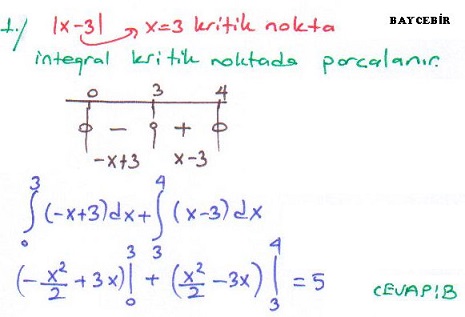 1./ |x-3| → x=3 kritik nokta BAYCEBİR
integral kritik noktada parçalanır.
0 3 4
- +
-x+3 x-3
∫₀³ (-x+3)dx + ∫₃⁴ (x-3)dx
(-x²/2 + 3x)|₀³ + (x²/2 - 3x)|₃⁴ = 5
CEVAP:B